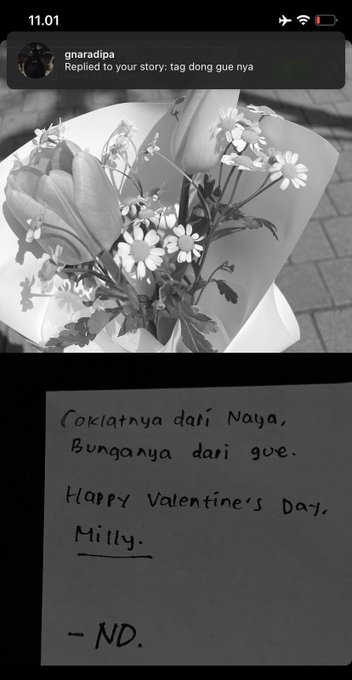 11.01
gnaradipa
Replied to your story: tag dong gue nya
Coklatnya dari Naya,
Bunganya dari gue.
Happy Valentine's Day,
Milly.
- ND.